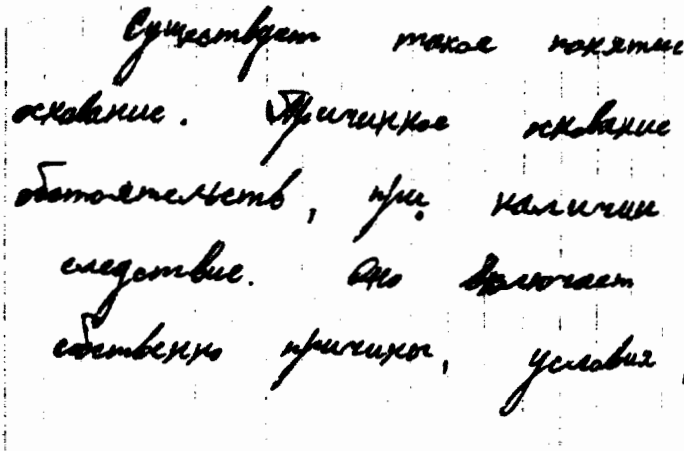 Существует такое понятие
основание. Причинное основание
обстоятельств, при наличии
следствие. Оно включает
собственно причины, условия,